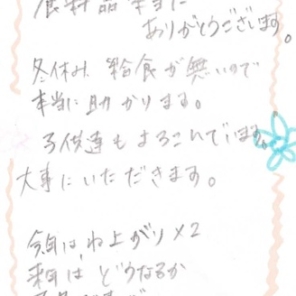 食料品本当に
ありがとうございます。
冬休み、給食が無いので
本当に助かります。
子供達もよろこんでいます。
大事にいただきます。
今年は、ね上がり×2
来年はどうなるか